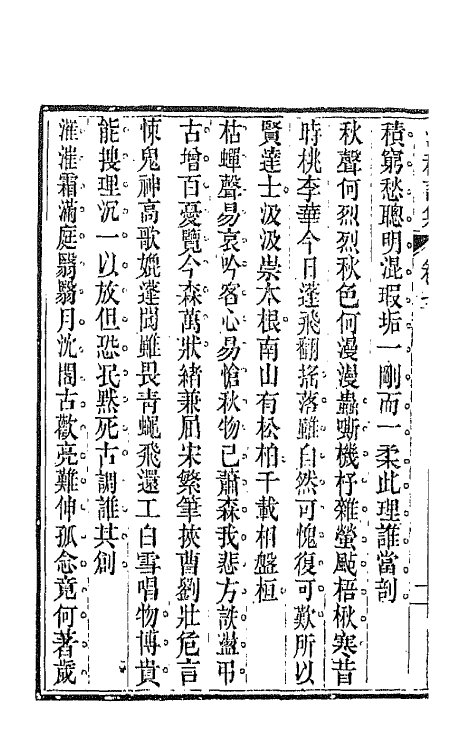 積窮愁聰明混瑕垢一剛而一柔此理誰當剖
秋聲何烈烈秋色何漫漫蟲嘶機杼雜螢颭梧楸寒昔
時桃李華今日蓬飛翻搖落雖自然可愧復可歎所以
賢達士汲汲崇本根南山有松柏千載相盤桓
枯蟬聲易哀吟客心易愴秋物已蕭森我悲方訣盪弔
古增百憂覽今森萬狀緒兼屈宋繁筆挾曹劉壯危言
悚鬼神高歌媲蓬閬雖畏青蠅飛還工白雪唱物博貴
能搜理沉一以放但恐泯黙死古調誰共創
漼漼霜滿庭翳翳月沈閣古歡亮難伸孤念竟何著歲